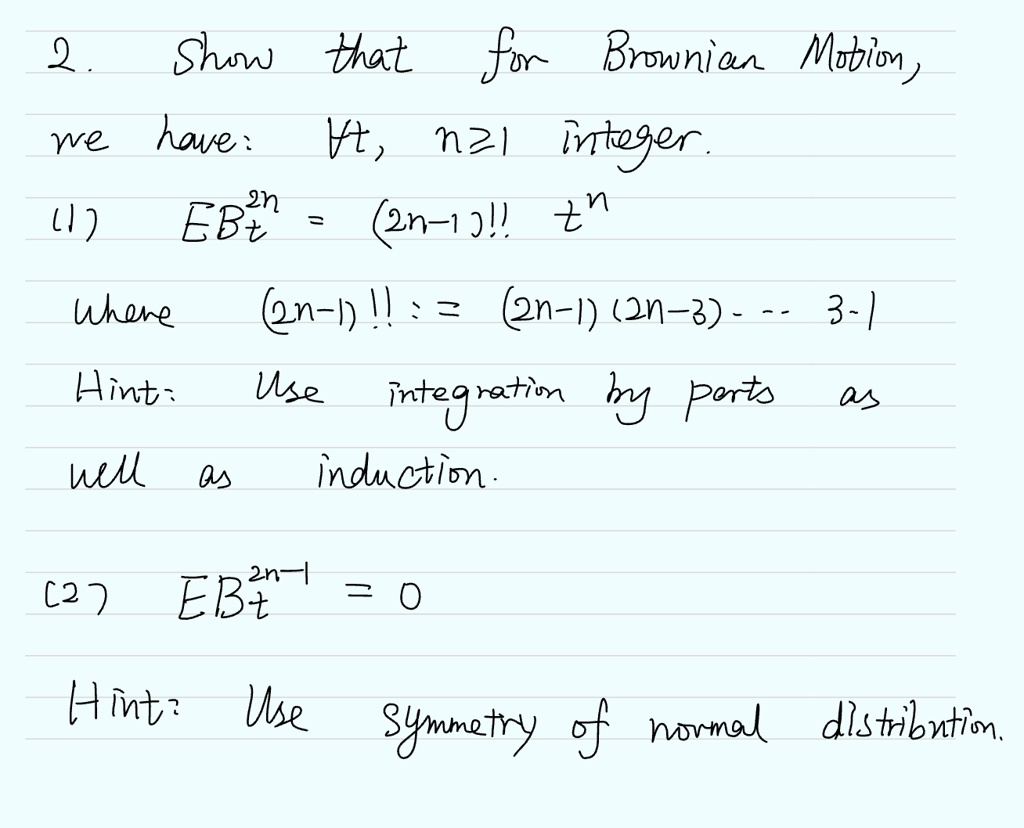 2. Show that for Brownian Motion,
we have: ∀t, n≥1 integer.
(1) EB_t^{2n} = (2n-1)!! t^n
where (2n-1)!! := (2n-1)(2n-3)---- 3·1
Hint: Use integration by parts as
well as induction.
(2) EB_t^{2n-1} = 0
Hint: Use symmetry of normal distribution.